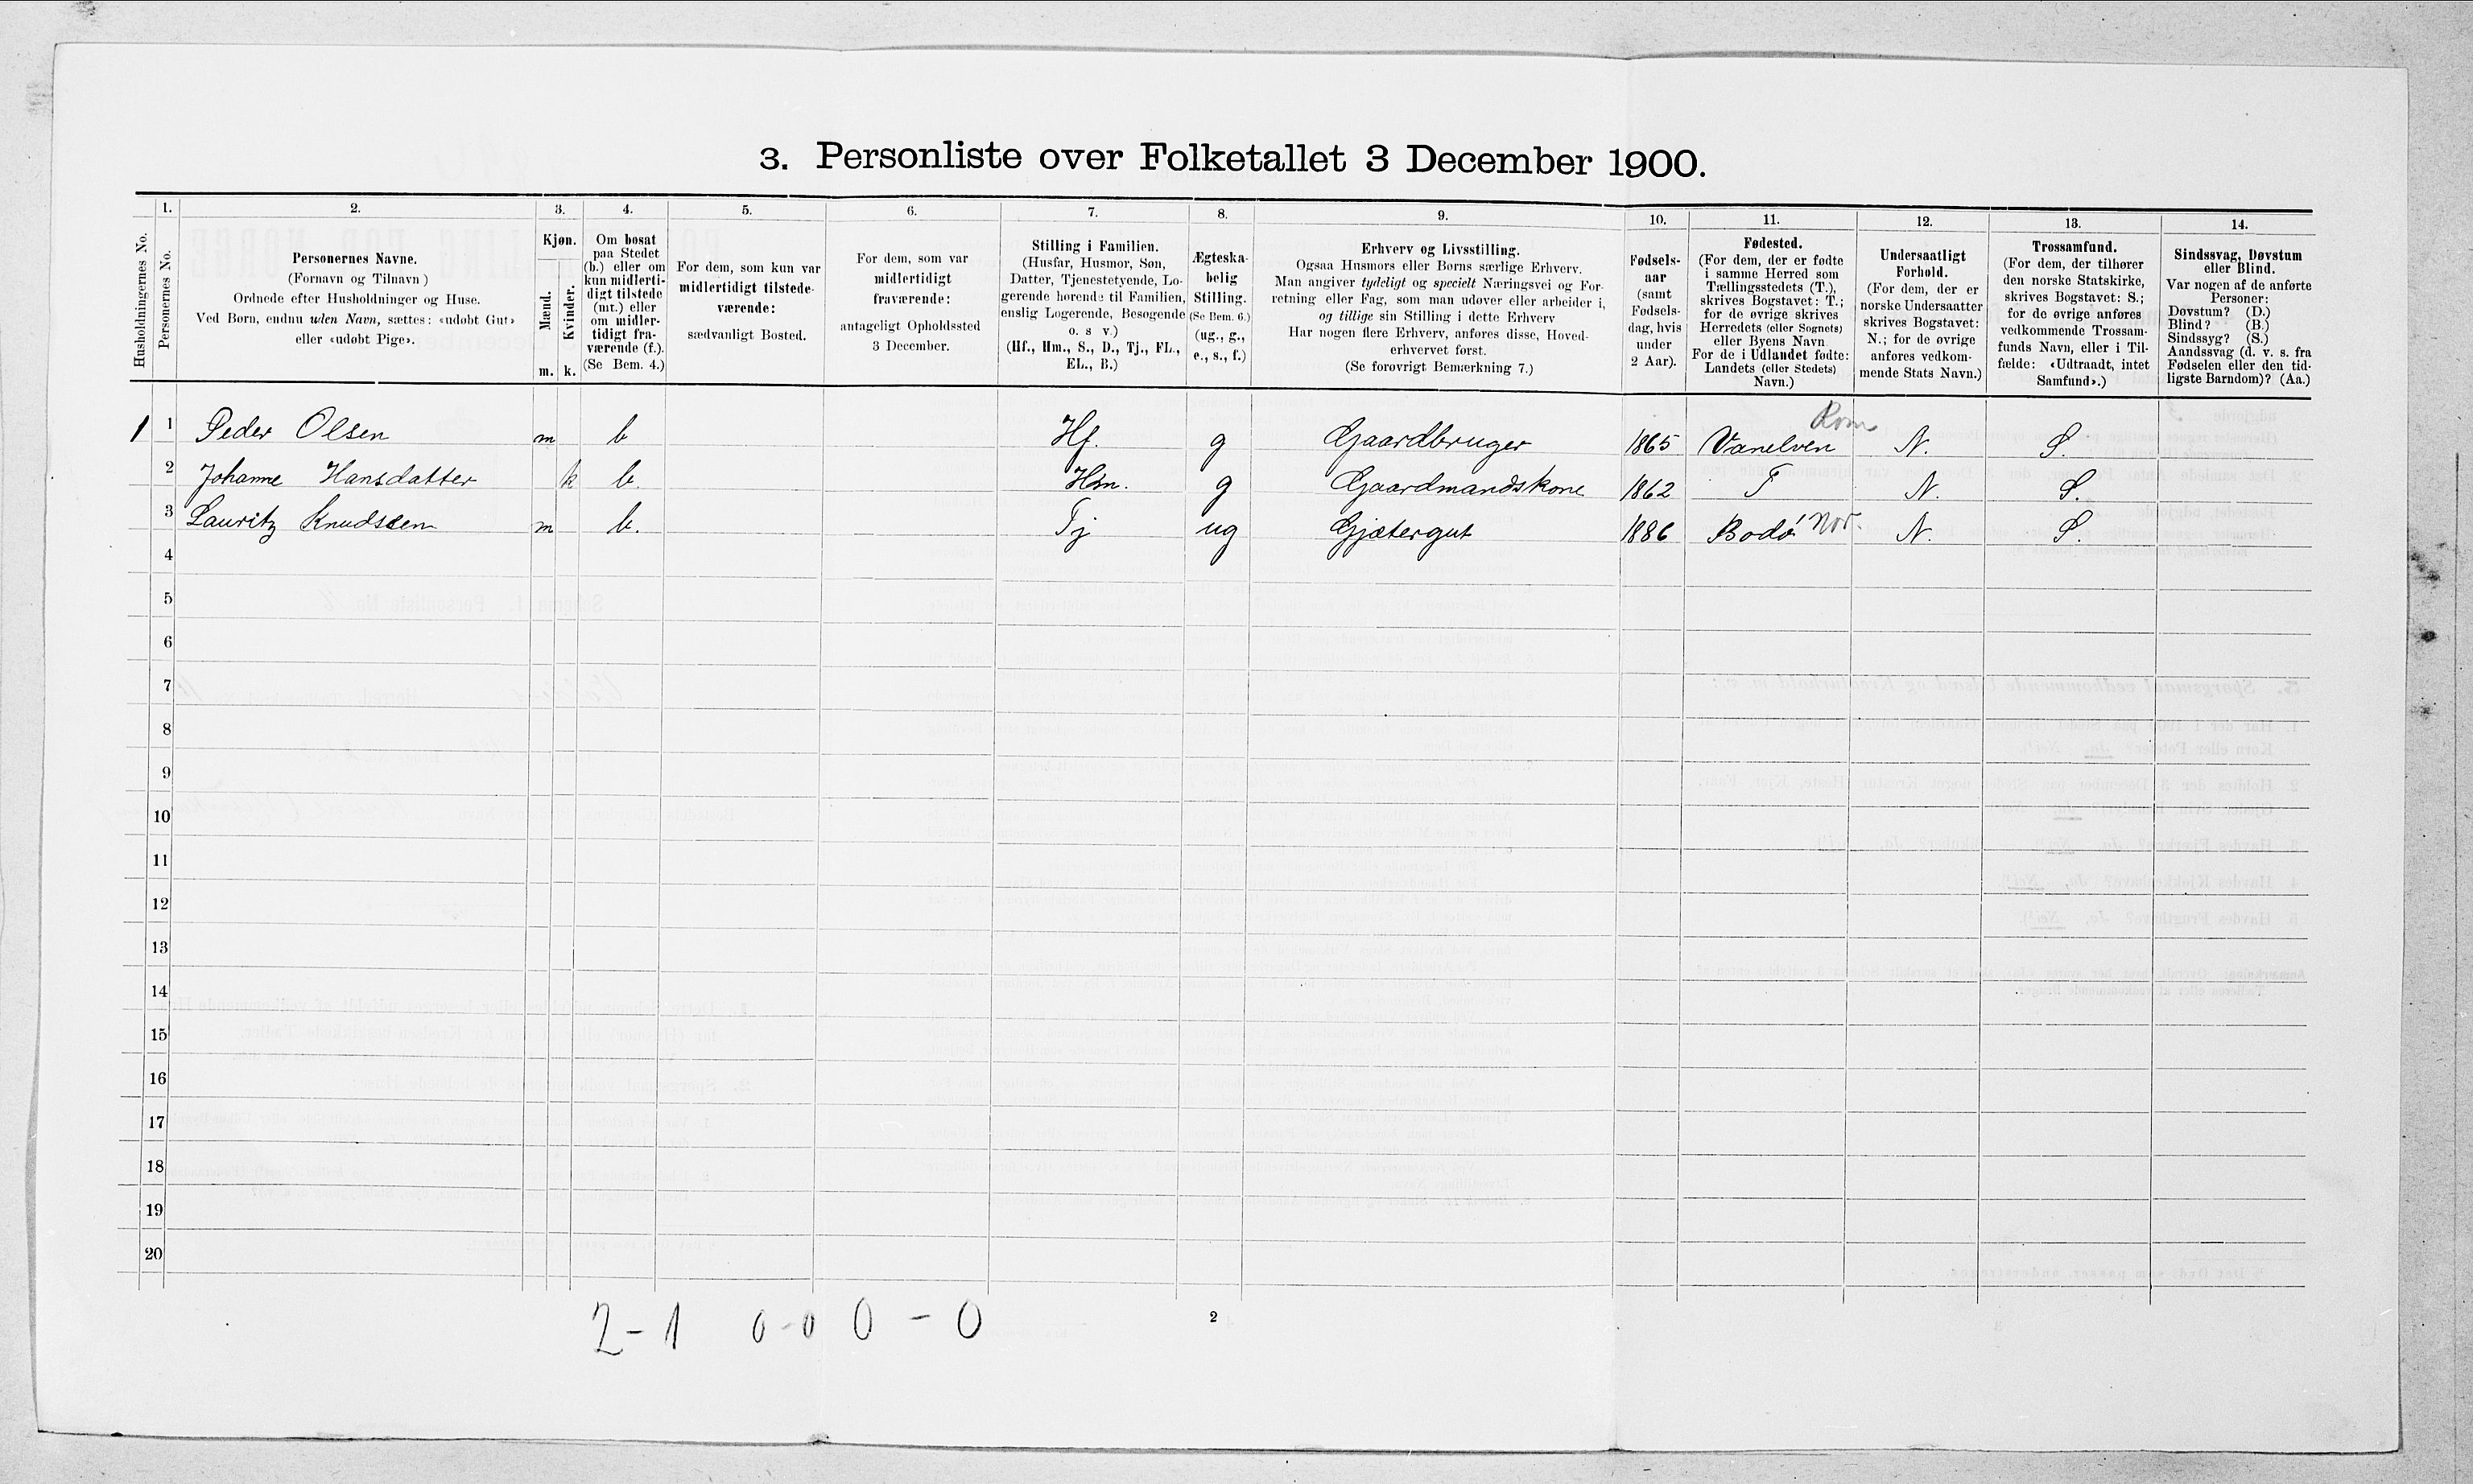 3. Personliste over Folketallet 3 December 1900.
Husholdningernes No.
1.
Personernes No.
2.
Personernes Navne.
(Fornavn og Tilnavn)
Ordnede efter Husholdninger og Huse.
Ved Børn, endnu uden Navn, sættes: «udøbt Gut»
eller «udøbt Pige».
3.
Kjøn.
Mænd.
Kvinder.
m. k.
4.
Om bosat
paa Stedet
(b.) eller om
kun midlerti-
digt tilstede
(mt.) eller
om midler-
tidigt fra-
værende (f.).
(Se Bem. 4.)
5.
For dem, som kun var
midlertidigt tilstede-
værende:
sædvanligt Bosted.
6.
For dem, som var
midlertidigt
fraværende:
antageligt Opholdssted
3 December.
7.
Stilling i Familien.
(Husfar, Husmor, Søn,
Datter, Tjenestetyende, Lo-
gerende hørende til Familien,
enslig Logerende, Besøgende
o. s v.)
(Hf., Hm., S., D., Tj., FL.,
EL., B.)
8.
Ægteska-
belig
Stilling.
(Se Bem. 6.)
(ug., g.,
e., s., f.)
9.
Erhverv og Livsstilling.
Ogsaa Husmors eller Børns særlige Erhverv.
Man angiver tydeligt og specielt Næringsvei og For-
retning eller Fag, som man udøver eller arbeider i,
og tillige sin Stilling i dette Erhverv
Har nogen flere Erhverv, anføres disse, Hoved-
erhvervet først.
(Se forøvrigt Bemærkning 7.)
10.
Fødsels-
aar
(samt
Fødsels-
dag, hvis
under
2 Aar).
11.
Fødested.
(For dem, der er fødte
i samme Herred som
Tællingsstedets (T.),
skrives Bogstavet: T.;
for de øvrige skrives
Herredets (eller Sognets)
eller Byens Navn
For de i Udlandet fødte:
Landets (eller Stedets)
Navn.)
12.
Undersaatligt
Forhold.
(For dem, der er
norske Undersaatter
skrives Bogstavet:
N.; for de øvrige
anføres vedkom-
mende Stats Navn.)
13.
Trossamfund.
(For dem, der tilhører
den norske Statskirke,
skrives Bogstavet: S.;
for de øvrige anføres
vedkommende Trossam-
funds Navn, eller i Til-
fælde: «Udtraadt, intet
Samfund».)
14.
Sindssvag, Døvstum
eller Blind.
Var nogen af de anførte
Personer:
Døvstum? (D.)
Blind? (B.)
Sindssyg? (S.)
Aandssvag (d. v. s. fra
Fødselen eller den tid-
ligste Barndom)? (Aa.)
1 1 Peder Olsen m b Hf. g Gaardbruger 1865 Vanelven Rom N. S.
2 Johanne Hansdatter k b Hm. g Gaardmandskone 1862 T N. S.
3 Lauritz Knudsen m b. Tj ug Gjætergut 1886 Bodø Nor. N. S.
4
5
6
7
8
9
10
11
12
13
14
15
16
17
18
19
20
2 - 1 0 - 0 0 - 0
2